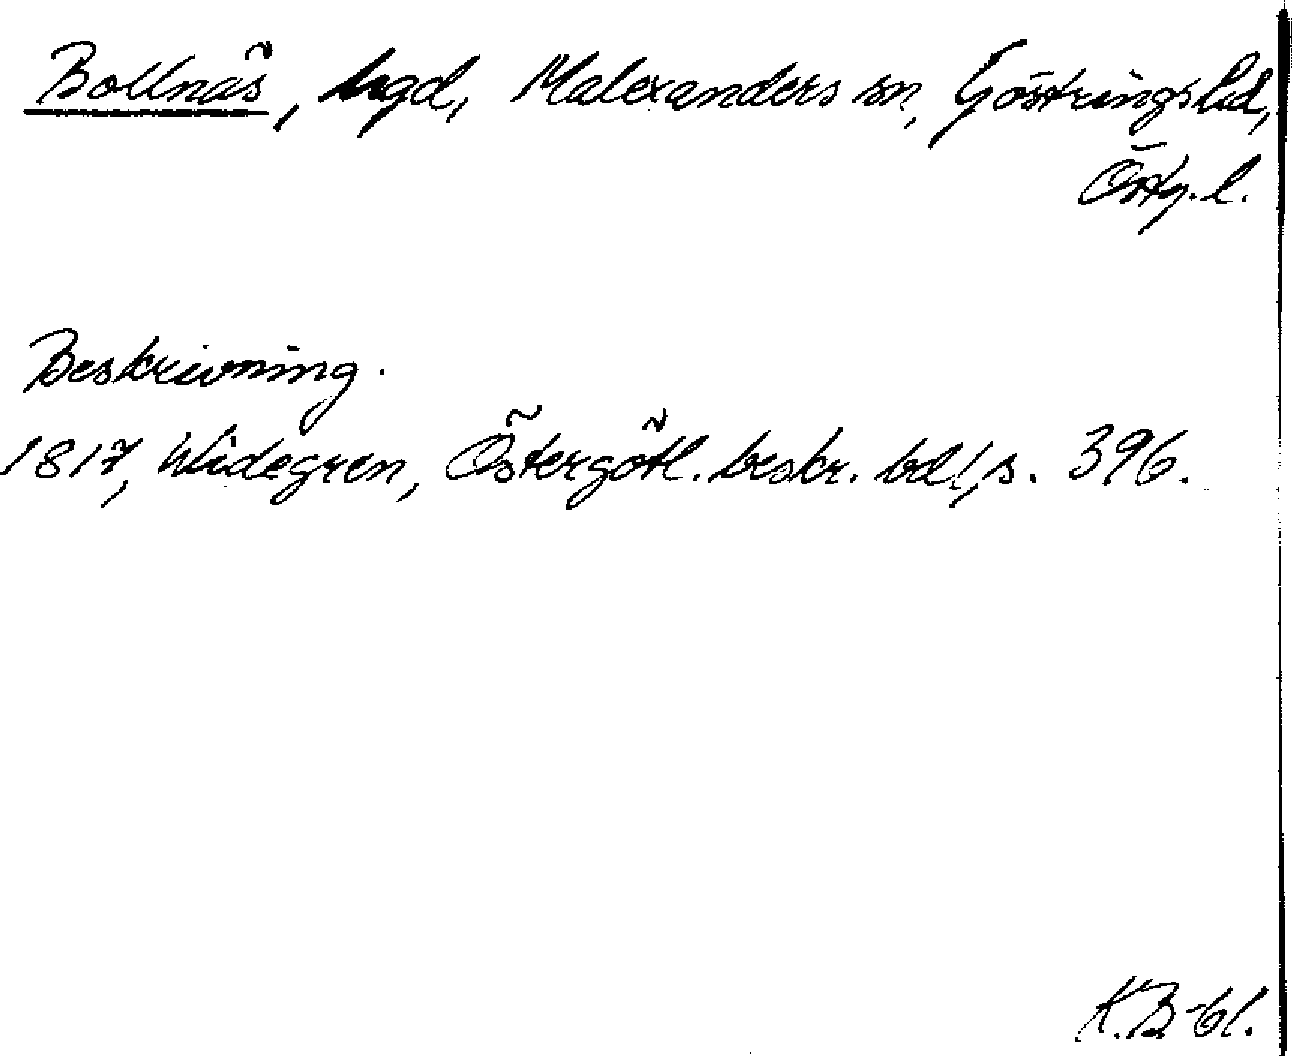 Bollnäs, hgd, Malexanders sn, Göstrings hd,
Östg. l.
Beskrivning.
1817, Widegren, Östergötl. beskr. bd 1, s. 396.
K.B-61.